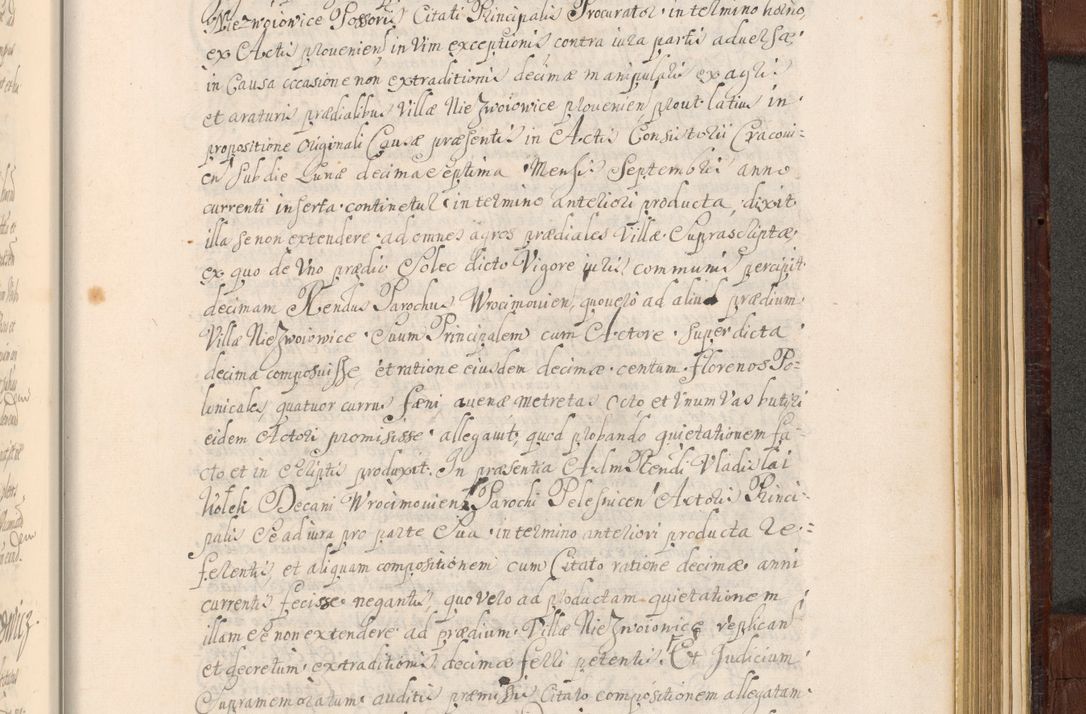 Niezwoiowice Possoris Citati Principalis Procurator in termino hodierno,
ex Actis provenien in vim exceptionis contra iura partis adversæ,
in Causa occasione non extraditionis decimæ manipularis ex agris
et araturis prædialibus Villæ Niezwoiowice provenien prout latius in
propositione originali Causæ præsentis in Actis Consistorii Cracovi-
en sub die Lunæ decima septima Mensis Septembris anno
currenti inserta continetur in termino anteriori producta, dixit
illa se non extendere ad omnes agros prædiales Villæ Suprascriptæ,
ex quo de Uno prædio Solec dicto Vigore iuris communis percipit
decimam Rendus Parochus Wrocimovien, quo vero ad aliud prædium
Villæ Niezwoiowice Suum Principalem cum Actore super dicta
decima composuisse, et ratione eiusdem decimæ centum florenos Po-
lonicales, quatuor currus fæni avenæ metretas octo et Unum Vas butiri
eidem Actori promisisse allegavit, quod probando quietationem fa-
cto et in scriptis produxit. In præsentia Adm Rendi Vladislai
Decani Wrocimovien Parochi Pelesnicen Actoris Princi-
palis Se ad iura pro parte Sua in termino anteriori producta re-
ferentis, et aliquam compositionem cum Citato ratione decimæ anni
currentis fecisse negantis, quo vero ad productam quietationem
illam se non extendere ad prædium Villæ Niezwoiowice replican
et decretum extraditionis decimæ ferri petentis. Et Judicium
Supramemoratum auditis præmissis Citato compositionem allegatam